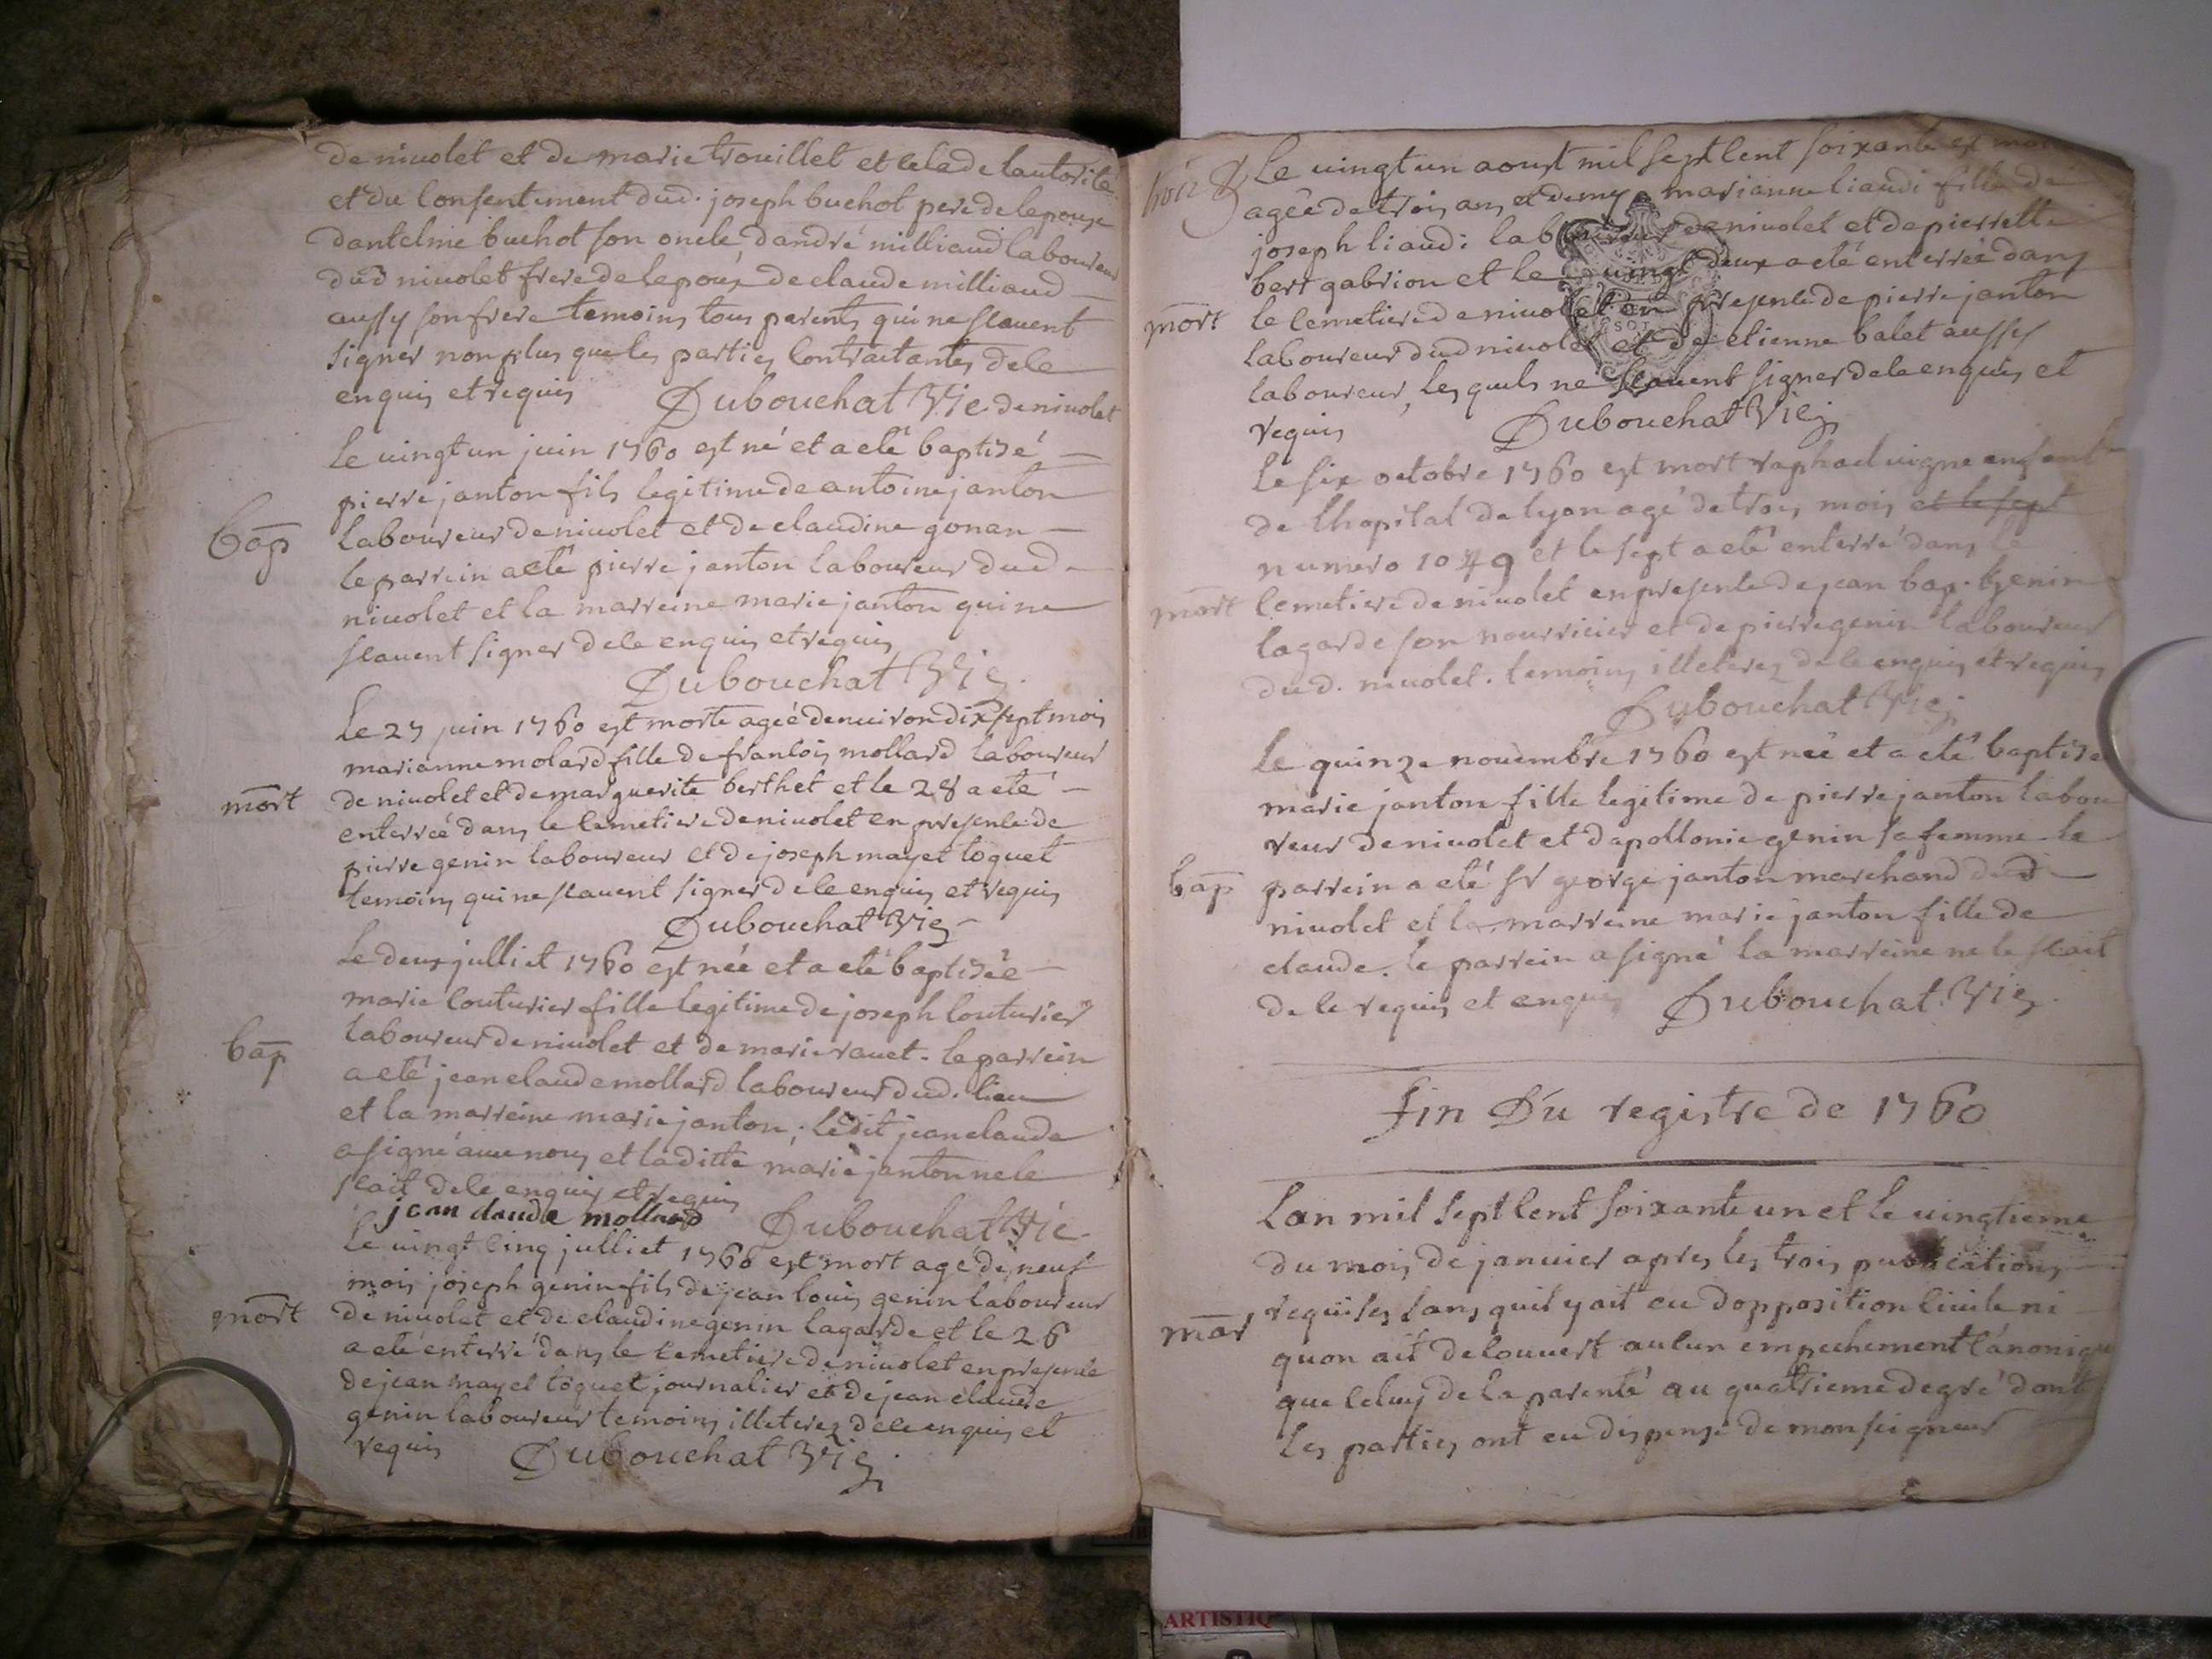 de niuolet et de marie trouillet et cela de lautorité
et du consentement dud. joseph buchot pere de lepouse
dantelme buchot son oncle, dandré milliaud laboureur
dud niuolet frere de lepoux de claude milliaud
aussy son frere temoins tous parents qui ne scauent
signer non plus que les parties contractantes de le
enquis et requis Dubouchat Vic. de niuolet
Le uingt un juin 1760 est né et a eté baptisé
pierre janton fils legitime de antoine janton
bap laboureur de niuolet et de claudine gonan
le parrein a eté pierre janton laboureur dud.
niuolet et la marreine marie janton qui ne
scauent signer de le enquis et requis
Dubouchat Vic.
Le 27 juin 1760 est morte ageé denuiron dix sept mois
marianne molard fille de francois mollard laboureur
mort de niuolet et de marguerite berthet et le 28 a eté
enterreé dans le cemetiere de niuolet en presence de
pierre genin laboureur et de joseph mayet toquet
temoins qui ne scauent signer de le enquis et requis
Dubouchat Vic
Le deux julliet 1760 est née et a eté baptisée
marie couturier fille legitime de joseph couturier
bap laboureur de niuolet et de marie rauet. le parrein
a eté jean claude mollard laboureur dud. lieu
et la marreine marie janton; ledit jean claude
a signé auec nous et laditte marie janton ne le
scait de le enquis et requis
jean claude mollard Dubouchat Vic.
Le uingt cinq julliet 1760 est mort agé de neuf
mois joseph genin fils de jean louis genin laboureur
mort de niuolet et de claudine genin lagarde et le 26
a eté enterré dans le cemetiere de niuolet en presence
de jean mayet toquet journalier et de jean claude
genin laboureur temoins illeterez de le enquis et
requis Dubouchat Vic.
Le uingt un aoust mil sept cent soixante est
agée de trois ans et demy marianne liaudi fille de
joseph liaudi laboureur de niuolet et de pierrette
bert gabrion et le uingt deux a eté enterreé dans
mort le cemetiere de niuolet en presence de pierre janton
laboureur dud niuolet et de etienne balet aussy
laboureur, lesquels ne scauent signer de le enquis et
requis Dubouchat Vic.
Le six octobre 1760 est mort raphael uigne enfant
de lhopital de lyon agé de trois mois et le sept
numero 1049 et le sept a eté enterré dans le
mort cemetiere de niuolet en presence de jean bap. genin
lagarde son nourricier et de pierre genin laboureur
dud. niuolet. temoins illeterez de le enquis et requis
Dubouchat Vic.
Le quinze nouembre 1760 est née et a eté baptisé
marie janton fille legitime de pierre janton labou
reur de niuolet et dapollonie genin sa femme le
bap parrein a eté sr george janton marchand dud
niuolet et la marreine marie janton fille de
claude. le parrein a signé la marreine ne le scait
de le requis et enquis Dubouchat. Vic.
Fin Du registre de 1760
Lan mil sept cent soixante un et le uingtieme
du mois de januier apres les trois publications
mar requises sans quil y ait eu dopposition ciuile ni
quon ait decouuert aucun empechement canonique
que celuy de la parenté au quatrieme degré dont
les parties ont eu dispense de monseigneur
ARTISTIQ